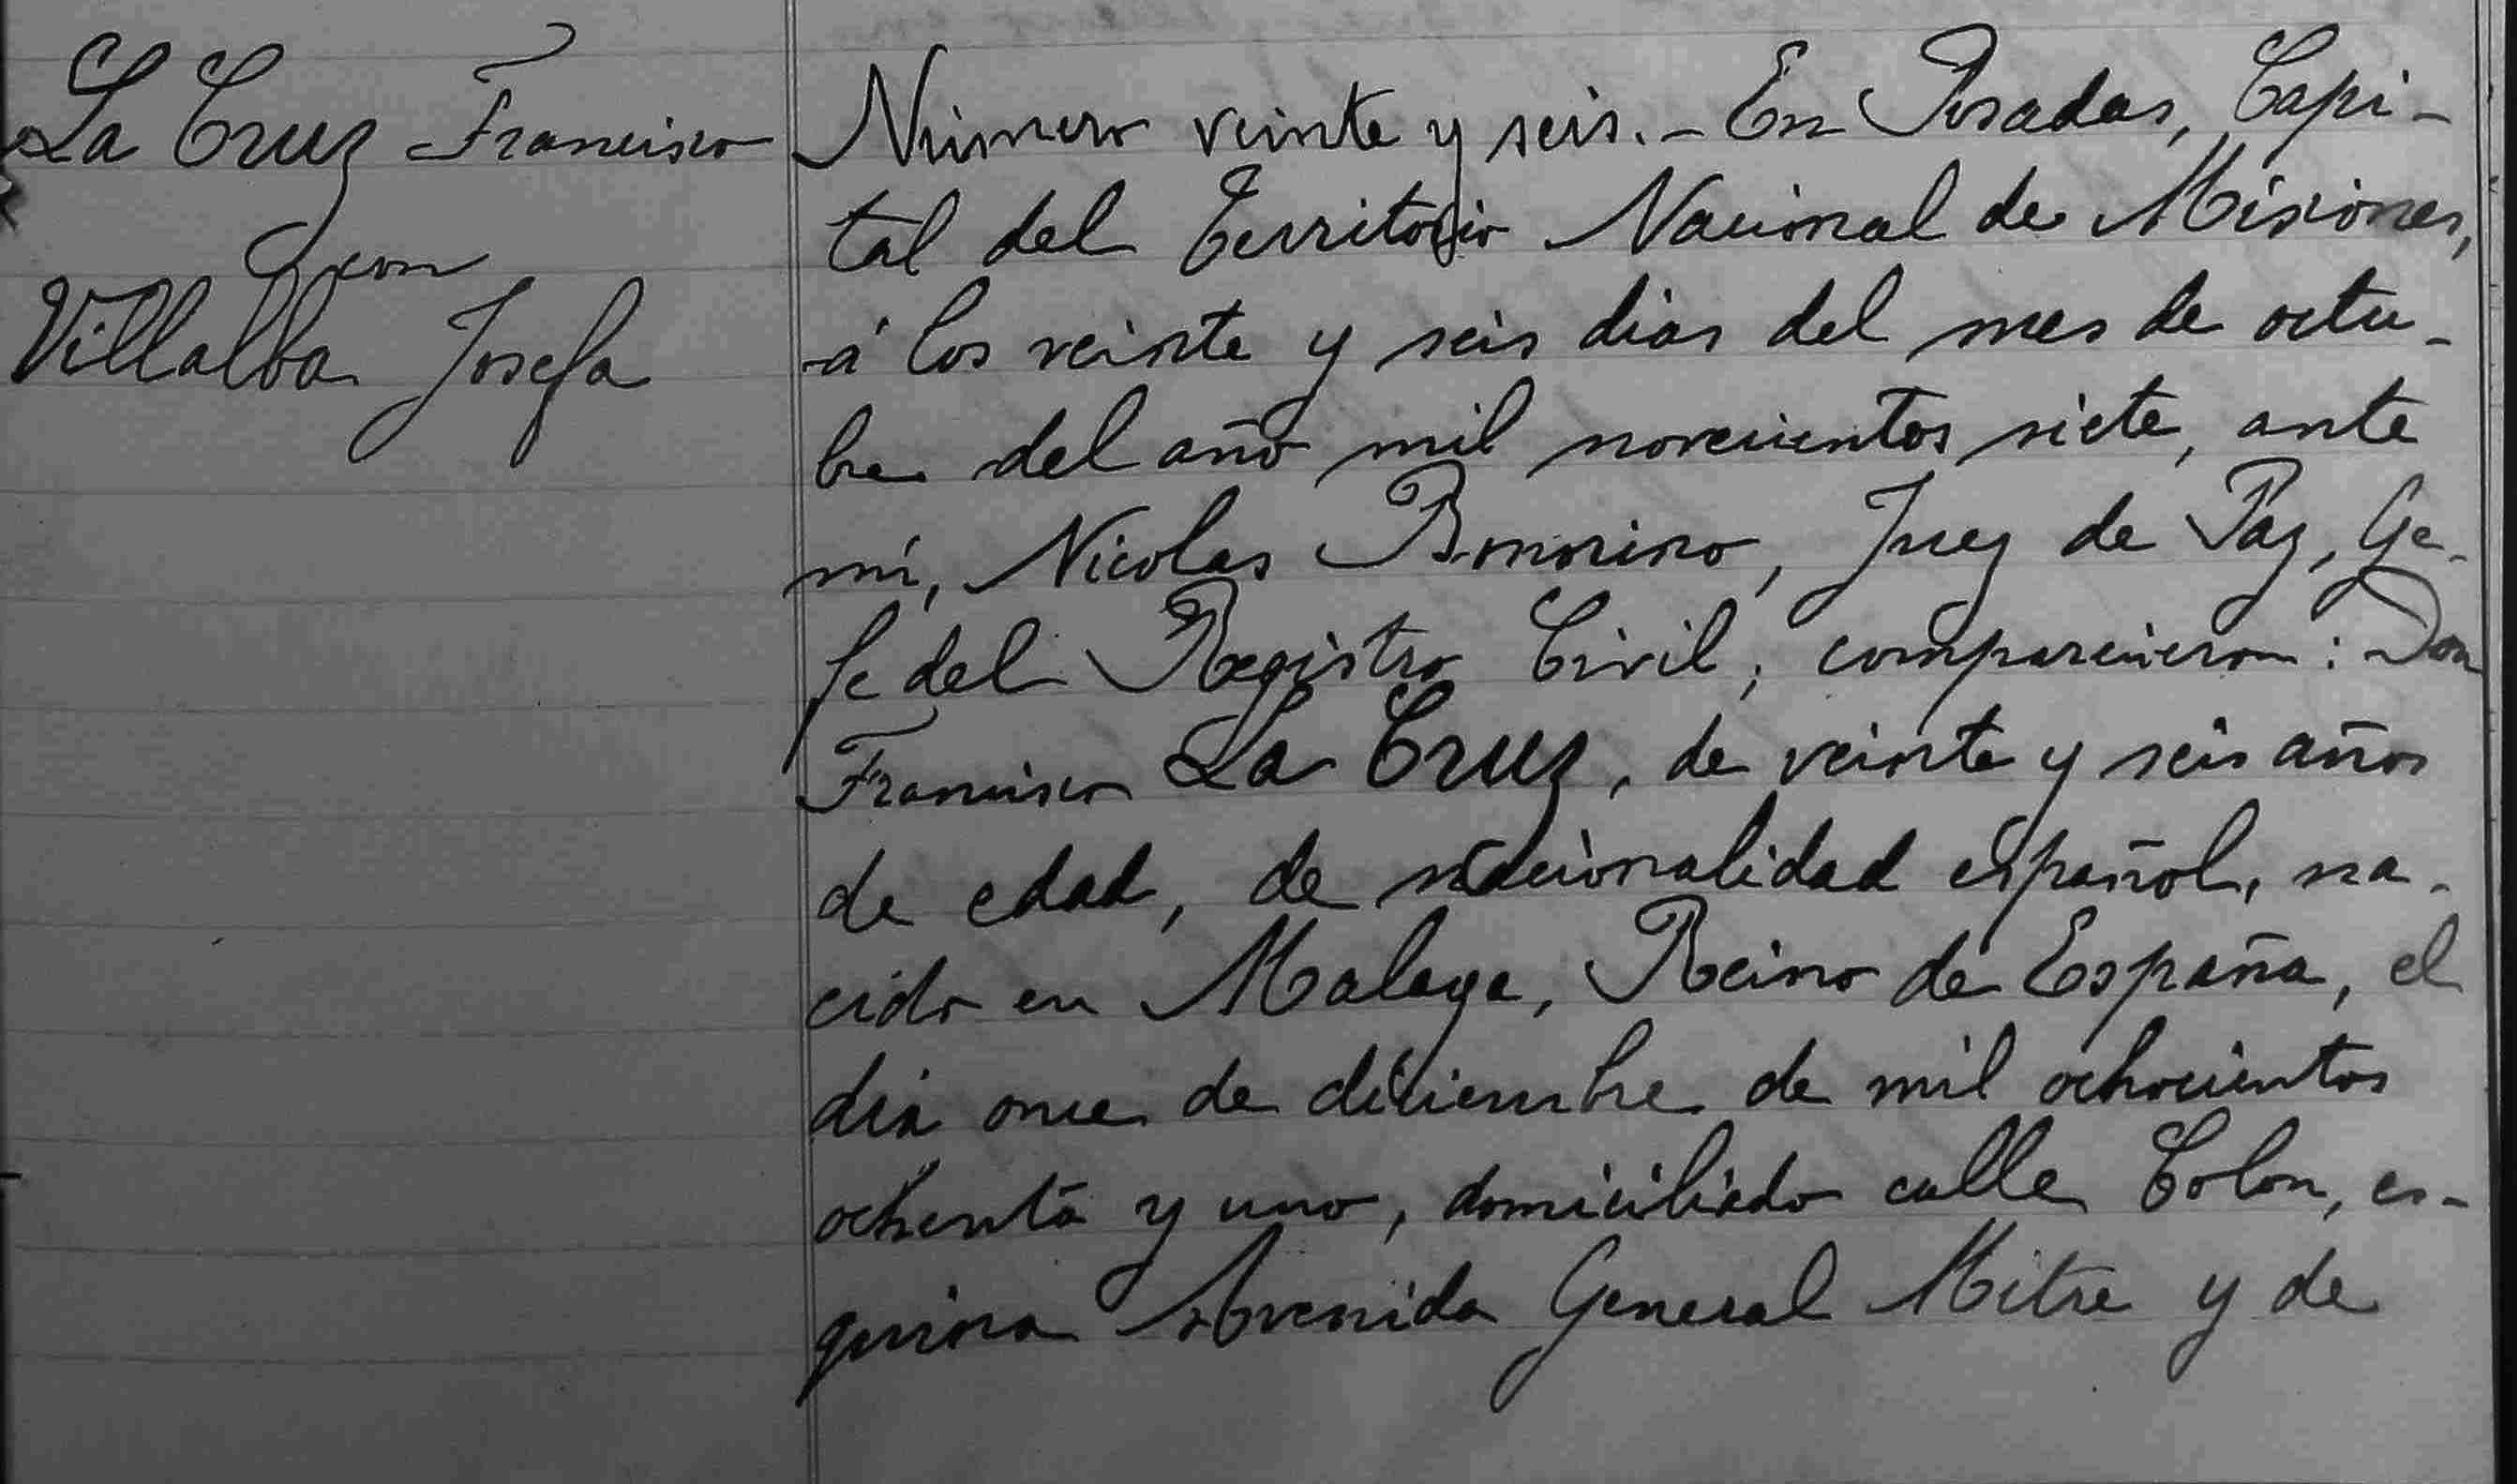 La Cruz Francisco
con
Villalba Josefa
Número veinte y seis.- En Posadas, Capi-
tal del Territorio Nacional de Misiones,
á los veinte y seis dias del mes de octu-
bre del año mil novecientos siete, ante
mí, Nicolas Bonorino, Juez de Paz, Ge-
fe del Registro Civil; comparecieron: Don
Francisco La Cruz, de veinte y seis años
de edad, de nacionalidad español, na-
cido en Malaga, Reino de España, el
dia once de diciembre de mil ochocientos
ochenta y uno, domiciliado calle Colon, es-
quina Avenida General Mitre y de